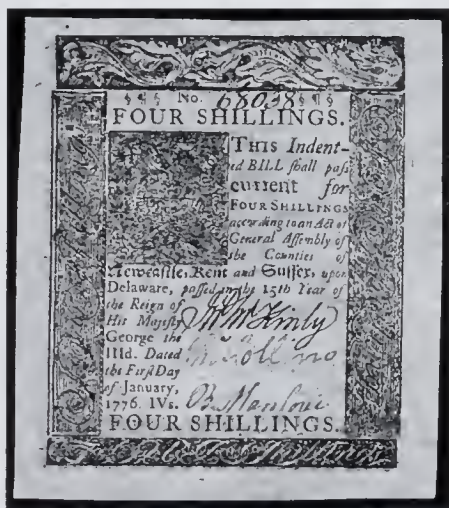 §¶§ No. 68038 §¶§
FOUR SHILLINGS.
THIS Indent-
ed BILL ſhall paſs
current for
FOUR SHILLINGS
according to an Act of
General Aſſembly of
the Counties of
Newcaſtle, Kent and Suſſex, upon
Delaware, paſſed in the 15th Year of
the Reign of
His Majeſty
George the
IIId. Dated
the Firſt Day
of January,
1776. IVs.
Jn McKinly
Collins
B Manlove
FOUR SHILLINGS.
Shillings